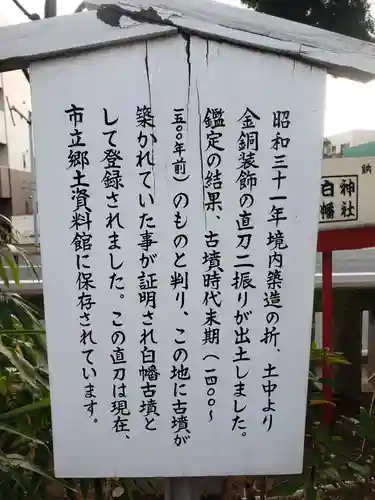 昭和三十一年境内築造の折、土中より
金銅装飾の直刀二振りが出土しました。
鑑定の結果、古墳時代末期(一四〇〇～
一五〇〇年前)のものと判り、この地に古墳が
築かれていた事が証明され白幡古墳と
して登録されました。この直刀は現在、
市立郷土資料館に保存されています。
納
神社
白幡